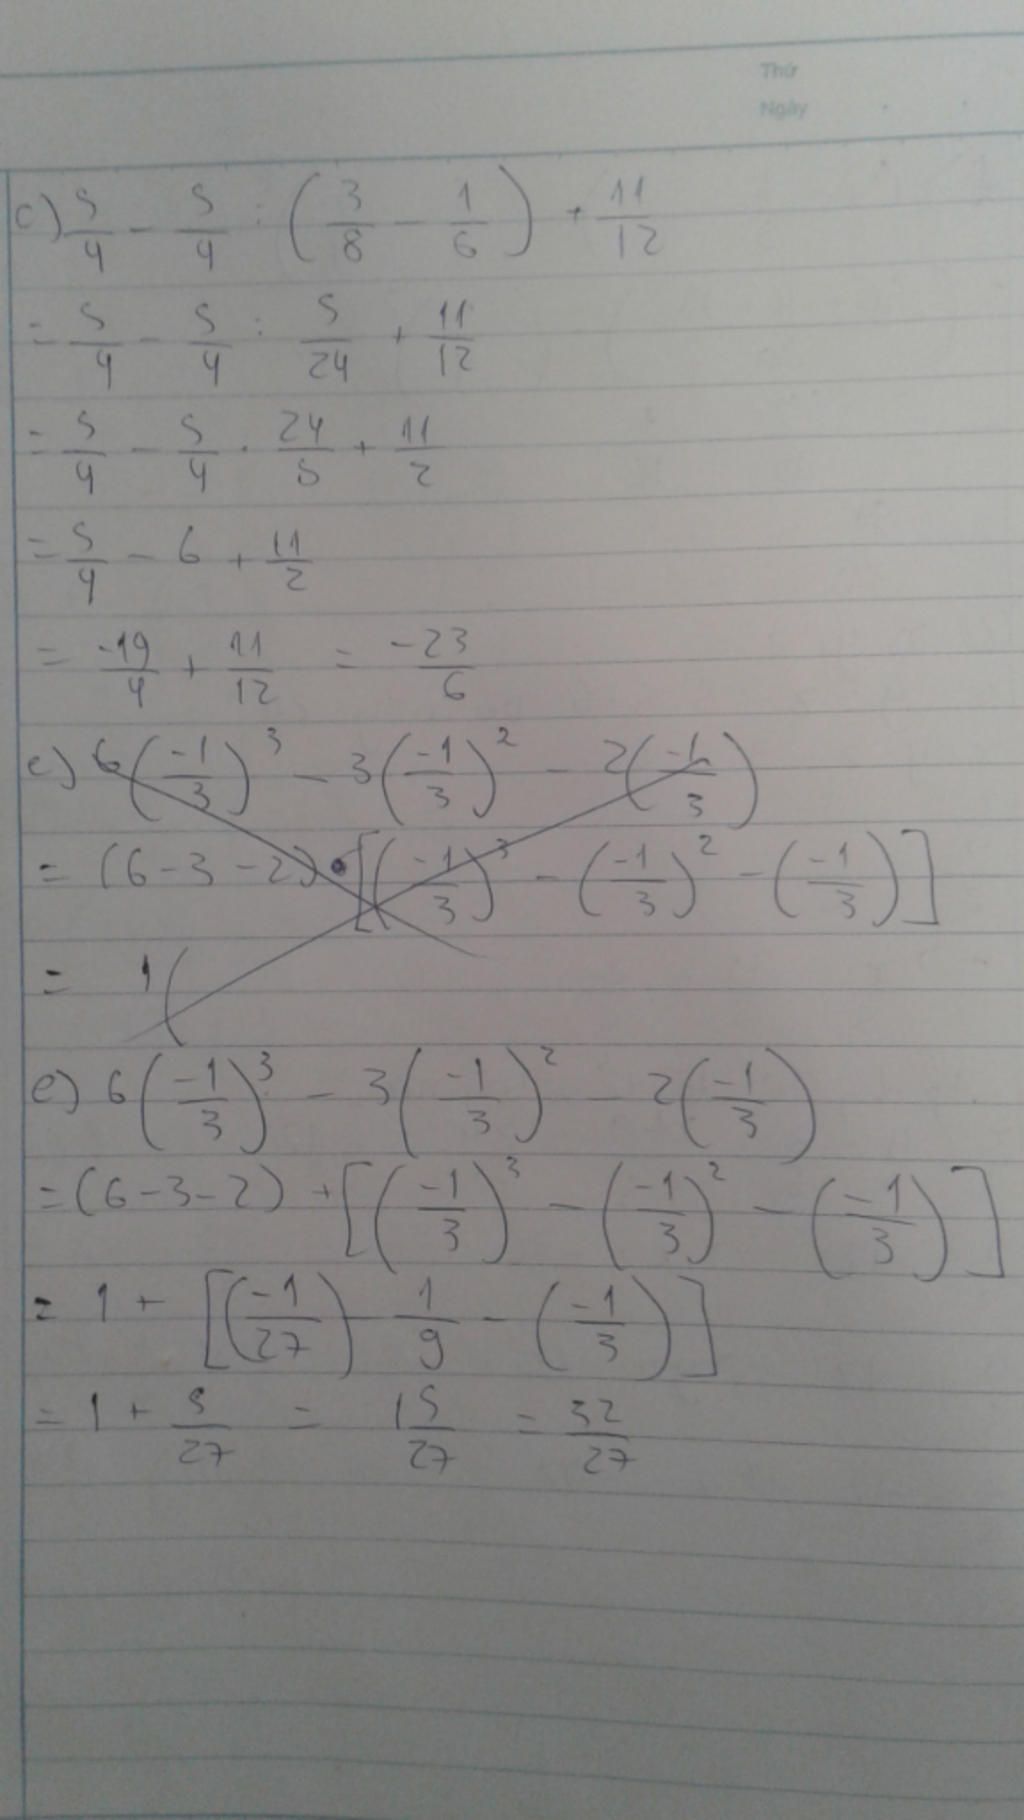 Thứ
Ngày
c) 5/4 - 5/4 : (3/8 - 1/6) + 11/12
= 5/4 - 5/4 : 5/24 + 11/12
= 5/4 - 5/4 . 24/5 + 11/2
= 5/4 - 6 + 11/2
= -19/4 + 11/12 = -23/6
e) 6(-1/3)^3 - 3(-1/3)^2 - 2(-1/3)
= (6-3-2) • [(-1/3)^3 - (-1/3)^2 - (-1/3)]
= 1(
e) 6(-1/3)^3 - 3(-1/3)^2 - 2(-1/3)
= (6-3-2) + [(-1/3)^3 - (-1/3)^2 - (-1/3)]
= 1 + [(-1/27) - 1/9 - (-1/3)]
= 1 + 5/27 = 1 5/27 = 32/27